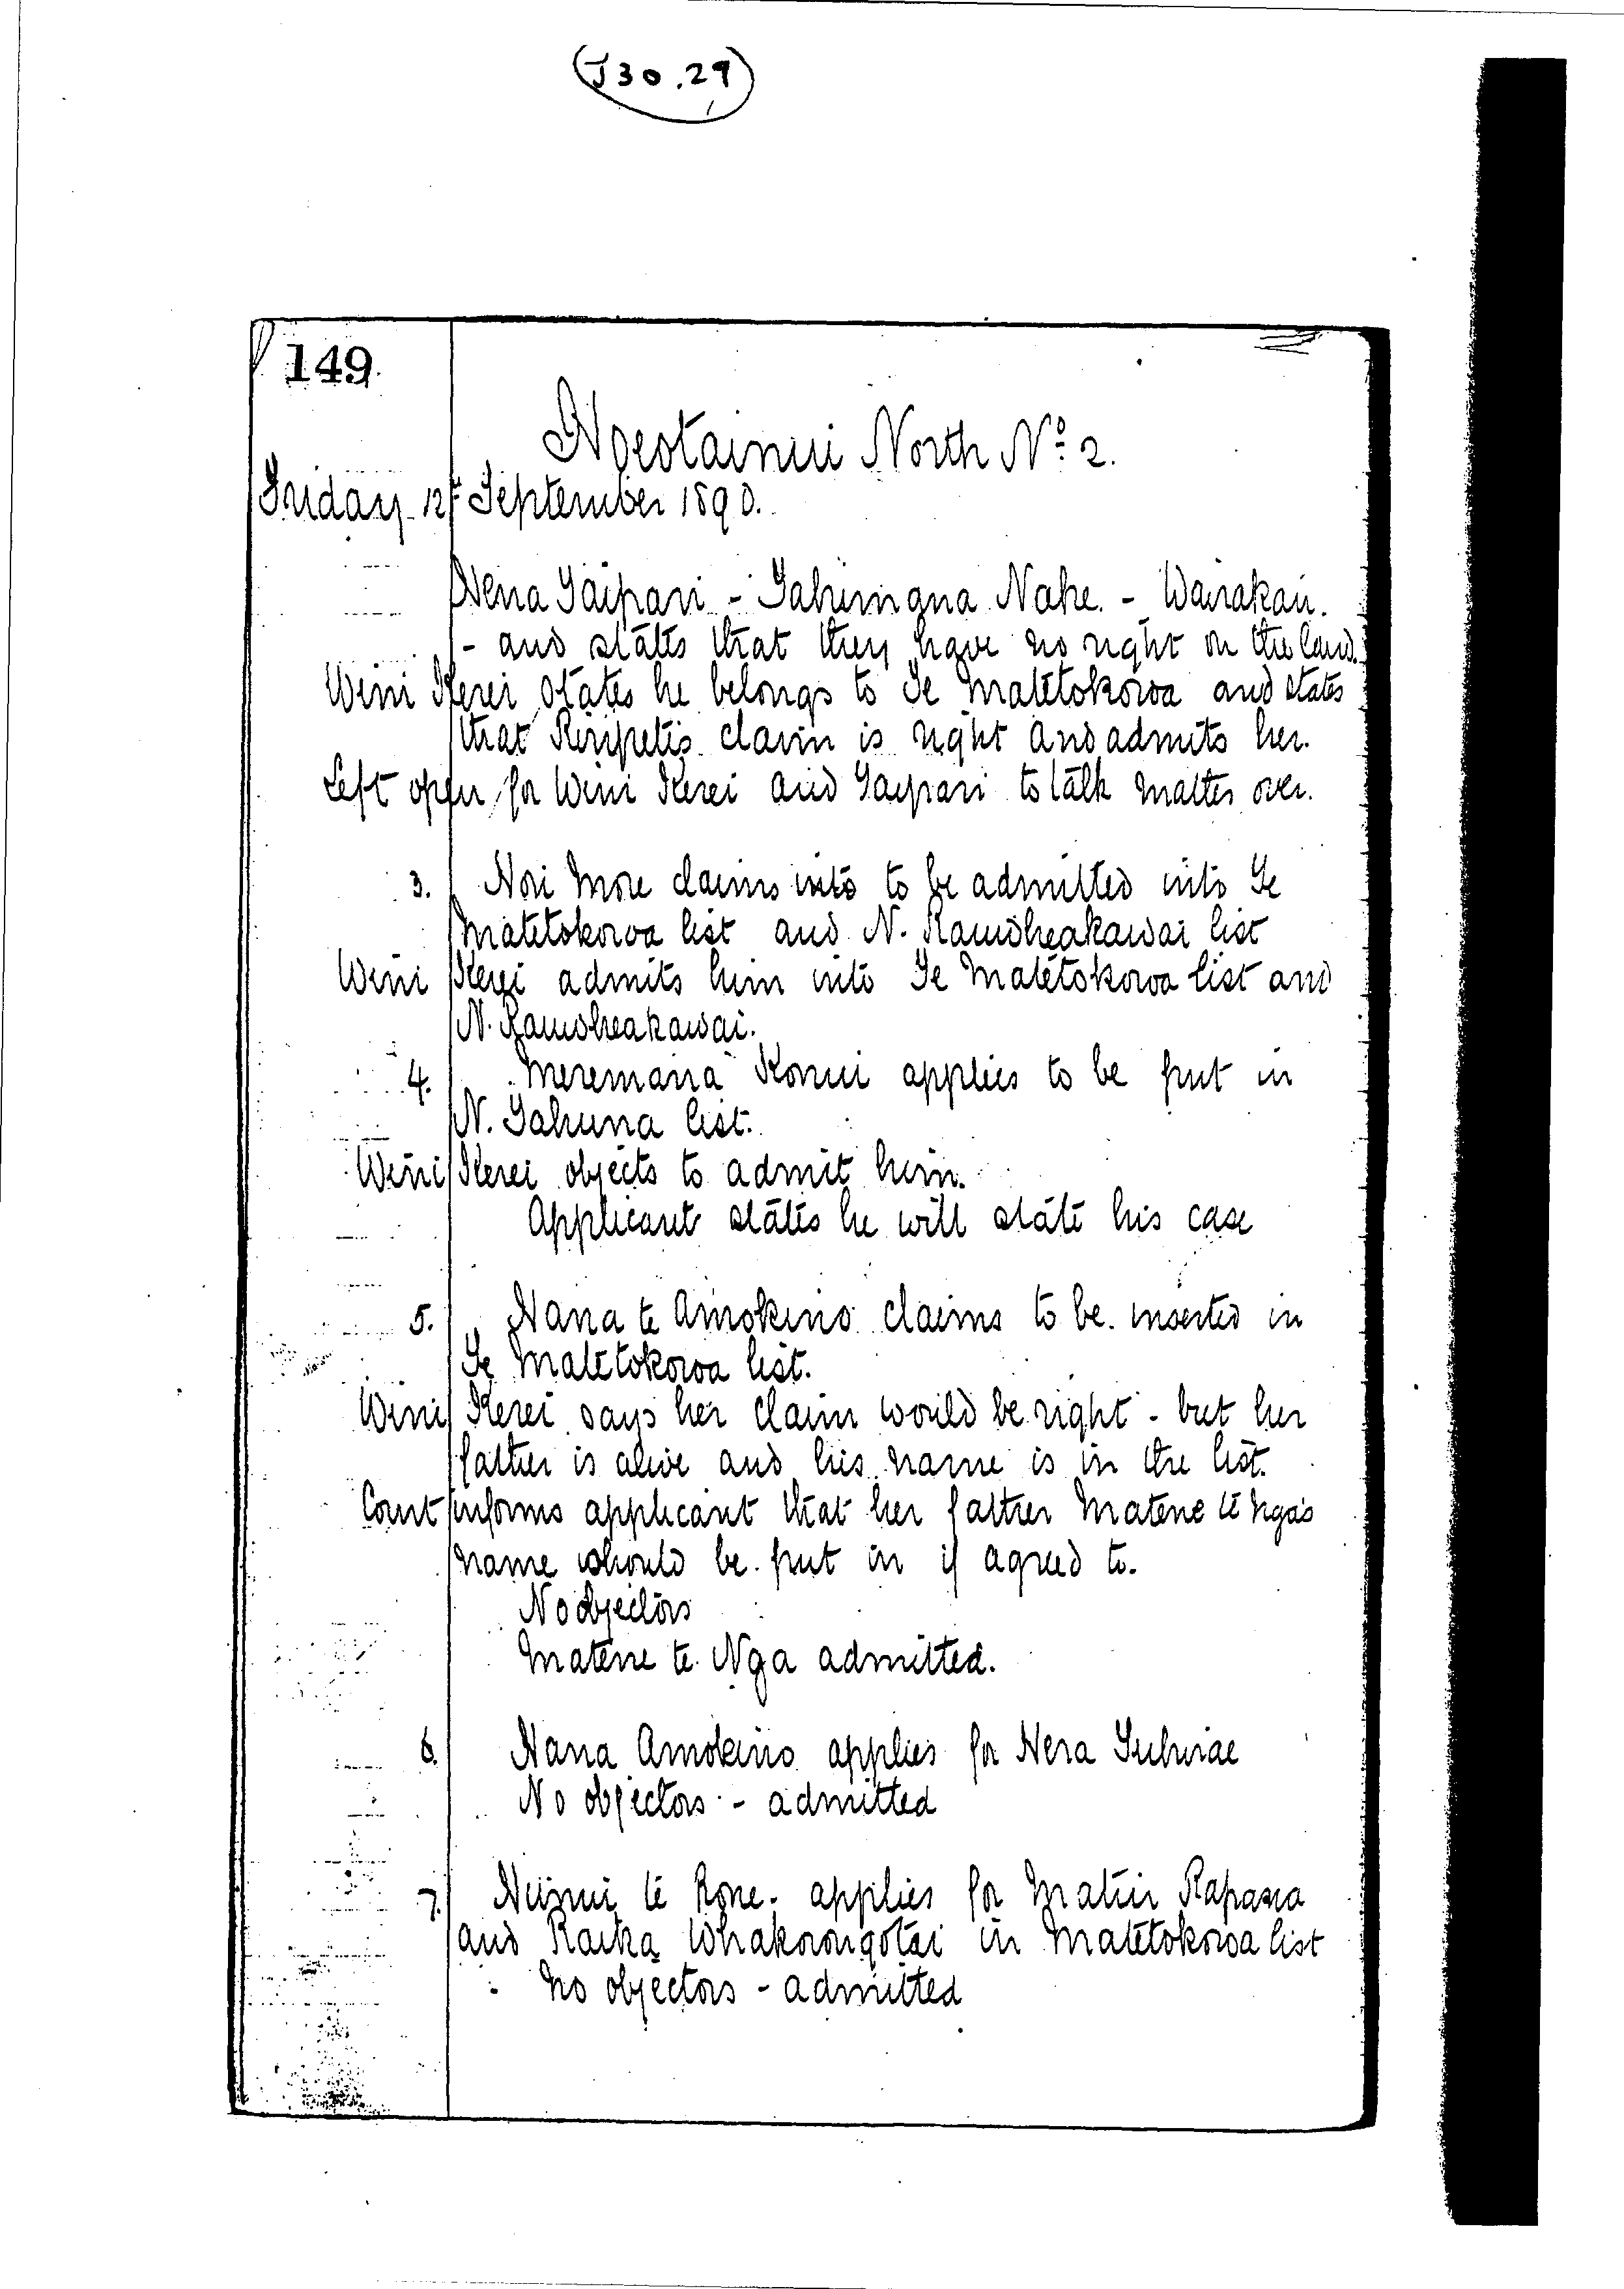 (J30.29)
149.
Hoeotainui North No 2.
Friday 12th September 1890.
Hena Taipari - Tahiringna Nahe. - Wairakau.
- and states that they have no right on the land.
Wini Kerei states he belongs to Te Matetokowa and states
that Reripetis claim is right and admits her.
Left open for Wini Kerei and Taipari to talk matter over.
3. Hori More claims into to be admitted into Te
Matetokowa list and N. Rauwheakawai list
Wini Kerei admits him into Te Matetokowa list and
N. Rauwheakawai.
4. Meremana Konui applies to be put in
N. Tahuna list.
Wini Kerei objects to admit him.
Applicant states he will state his case
5. Hana te Amokino claims to be inserted in
Te Matetokowa list.
Wini Kerei says her claim would be right - but her
father is alive and his name is in the list.
Court informs applicant that her father Matene te Nga's
name should be put in if agreed to.
No objectors
Matene te Nga admitted.
6. Hana Amokino applies for Hera
No objectors - admitted
7. te Rore applies for Rapana
and Raika Whakarongotai in Matetokowa list
No objectors - admitted